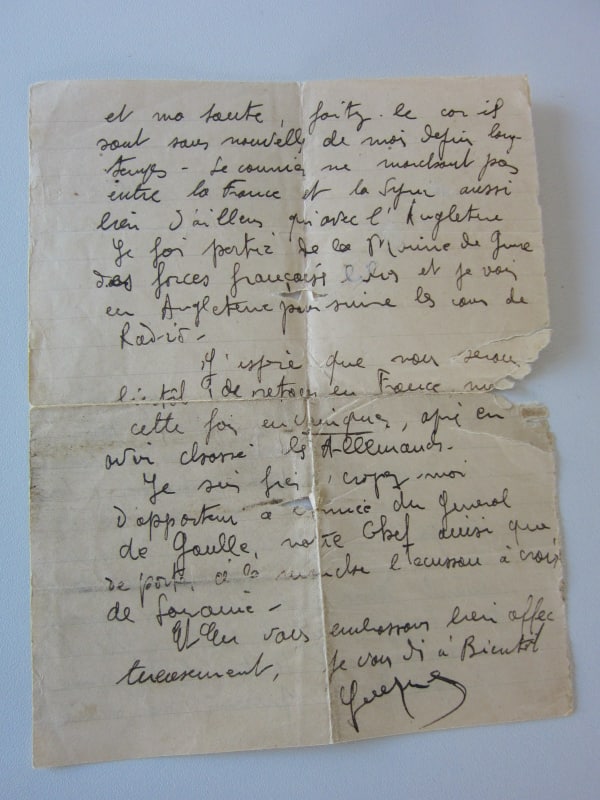 et ma santé, faites le car ils
sont sans nouvelles de moi depuis long
temps - Le courrier ne marchant pas
entre la France et la Syrie aussi
bien d'ailleurs qu'avec l'Angleterre
Je fais partie de la Marine de Guerre
des forces françaises libres et je vais
en Angleterre poursuivre les cours de
Radio -
J'espère que nous serons
bientôt de retour en France
cette fois en vainqueurs, après en
avoir chassé les Allemands.
Je suis fier, croyez moi
d'appartenir à l'armée du General
de Gaulle, notre Chef ainsi que
de porter à la manche l'écusson à croix
de Lorraine -
vous embrassant bien affec
tueusement, je vous dis à Bientôt